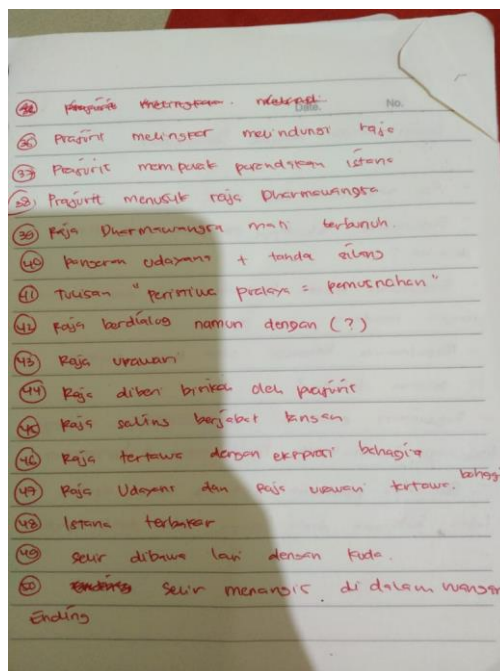 Date. No.
36 Prajurit melingkar melindungi raja
37 Prajurit memporak porandakan istana
38 Prajurit menusuk raja Dharmawangsa
39 Raja Dharmawangsa mati terbunuh.
40 Pangeran Udayana + tanda silang
41 Tulisan "peristiwa pralaya = pemusnahan"
42 Raja berdialog namun dengan (?)
43 Raja wrawari
44 Raja diberi oleh prajurit
45 Raja saling berjabat tangan
46 Raja tertawa dengan ekspresi bahagia
47 Raja Udayana dan Raja wrawari tertawa. bahag
48 Istana terbakar
49 selir dibawa lari dengan kuda.
50 selir menangis. di dalam
Ending